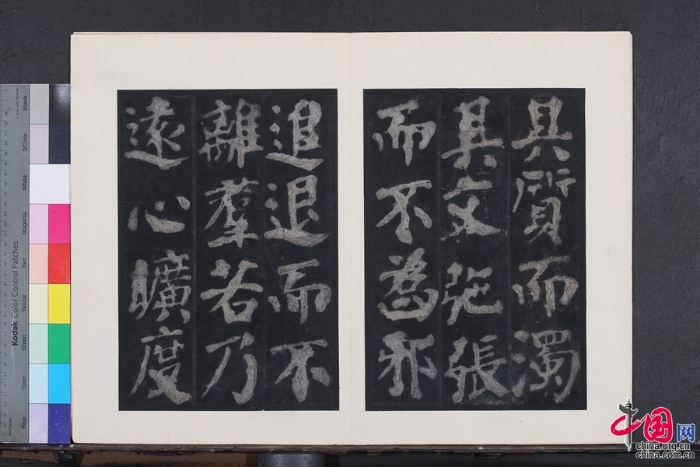 其質而濁
其文弛張
而不為邪
進退而不
離羣若乃
遠心曠度
Kodak Color Control Patches
Blue
Cyan
Green
Yellow
Red
Magenta
White
3/Color
Black
中国网
china.org.cn
china.com.cn